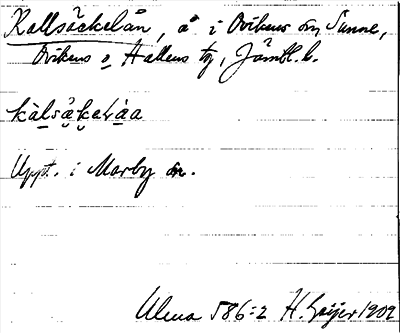 Kallsäckelån, å i Ovikens o Sunne,
Ovikens o Hallens tg, Jämtl. l.
kàlsa̤kelåa
Uppt. i Marby sn.
Ulma 586:2 H. Geijer 1909